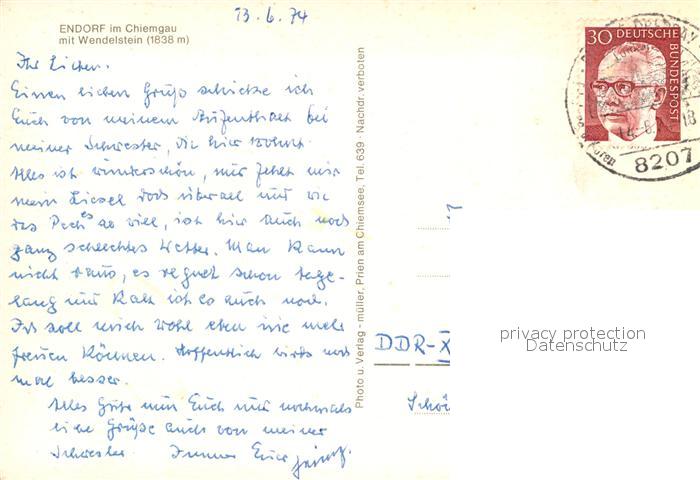 13.6.74
ENDORF im Chiemgau
mit Wendelstein (1838 m)
Ihr Lieben.
Einen lieben Gruß schicke ich
Euch von meinem Aufenthalt bei
meiner Schwester, die hier wohnt.
Alles ist wunderschön, nur fehlt mir
mein Liesel doch überall und wie
das Pech es so will, ist hier auch noch
ganz schlechtes Wetter. Man kann
nicht raus, es regnet schon tage-
lang und kalt ist es auch noch.
Ich soll mich wohl eben nie mehr
freuen können. Hoffentlich wirds noch
mal besser.
Alles Gute nun Euch und nochmals
liebe Grüße auch von meiner
Schwester Immer Euer
Photo u. Verlag - müller, Prien am Chiemsee, Tel. 639 · Nachdr. verboten
30 DEUTSCHE
BUNDESPOST
18
8207
DDR-X
Schö
privacy protection
Datenschutz